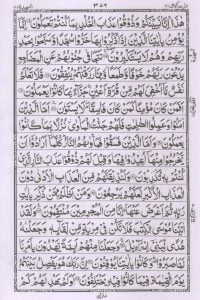 ٣٧٦
هٰذَا إِنَّا نَسِينٰكُمْ وَذُوقُوا عَذَابَ الْخُلْدِ بِمَا كُنْتُمْ تَعْمَلُونَ إِنَّمَا
يُؤْمِنُ بِاٰيٰتِنَا الَّذِينَ إِذَا ذُكِّرُوا بِهَا خَرُّوا سُجَّدًا وَسَبَّحُوا بِحَمْدِ
رَبِّهِمْ وَهُمْ لَا يَسْتَكْبِرُونَ تَتَجَافٰى جُنُوبُهُمْ عَنِ الْمَضَاجِعِ
يَدْعُونَ رَبَّهُمْ خَوْفًا وَطَمَعًا وَمِمَّا رَزَقْنٰهُمْ يُنْفِقُونَ فَلَا تَعْلَمُ
نَفْسٌ مَّا أُخْفِيَ لَهُمْ مِّنْ قُرَّةِ أَعْيُنٍ جَزَاءً بِمَا كَانُوا يَعْمَلُونَ
أَفَمَنْ كَانَ مُؤْمِنًا كَمَنْ كَانَ فَاسِقًا لَا يَسْتَوُونَ أَمَّا الَّذِينَ
اٰمَنُوا وَعَمِلُوا الصّٰلِحٰتِ فَلَهُمْ جَنّٰتُ الْمَأْوٰى نُزُلًا بِمَا كَانُوا
يَعْمَلُونَ وَأَمَّا الَّذِينَ فَسَقُوا فَمَأْوٰىهُمُ النَّارُ كُلَّمَا أَرَادُوا أَنْ
يَخْرُجُوا مِنْهَا أُعِيدُوا فِيهَا وَقِيلَ لَهُمْ ذُوقُوا عَذَابَ النَّارِ الَّذِي
كُنْتُمْ بِهِ تُكَذِّبُونَ وَلَنُذِيقَنَّهُمْ مِّنَ الْعَذَابِ الْأَدْنٰى دُونَ
الْعَذَابِ الْأَكْبَرِ لَعَلَّهُمْ يَرْجِعُونَ وَمَنْ أَظْلَمُ مِمَّنْ ذُكِّرَ بِاٰيٰتِ
رَبِّهِ ثُمَّ أَعْرَضَ عَنْهَا إِنَّا مِنَ الْمُجْرِمِينَ مُنْتَقِمُونَ وَلَقَدْ
اٰتَيْنَا مُوسَى الْكِتٰبَ فَلَا تَكُنْ فِي مِرْيَةٍ مِّنْ لِّقَائِهِ وَجَعَلْنٰهُ
هُدًى لِّبَنِي إِسْرَائِيلَ وَجَعَلْنَا مِنْهُمْ أَئِمَّةً يَهْدُونَ بِأَمْرِنَا
لَمَّا صَبَرُوا وَكَانُوا بِاٰيٰتِنَا يُوقِنُونَ إِنَّ رَبَّكَ هُوَ يَفْصِلُ بَيْنَهُمْ
يَوْمَ الْقِيٰمَةِ فِيمَا كَانُوا فِيهِ يَخْتَلِفُونَ أَوَلَمْ يَهْدِ لَهُمْ كَمْ